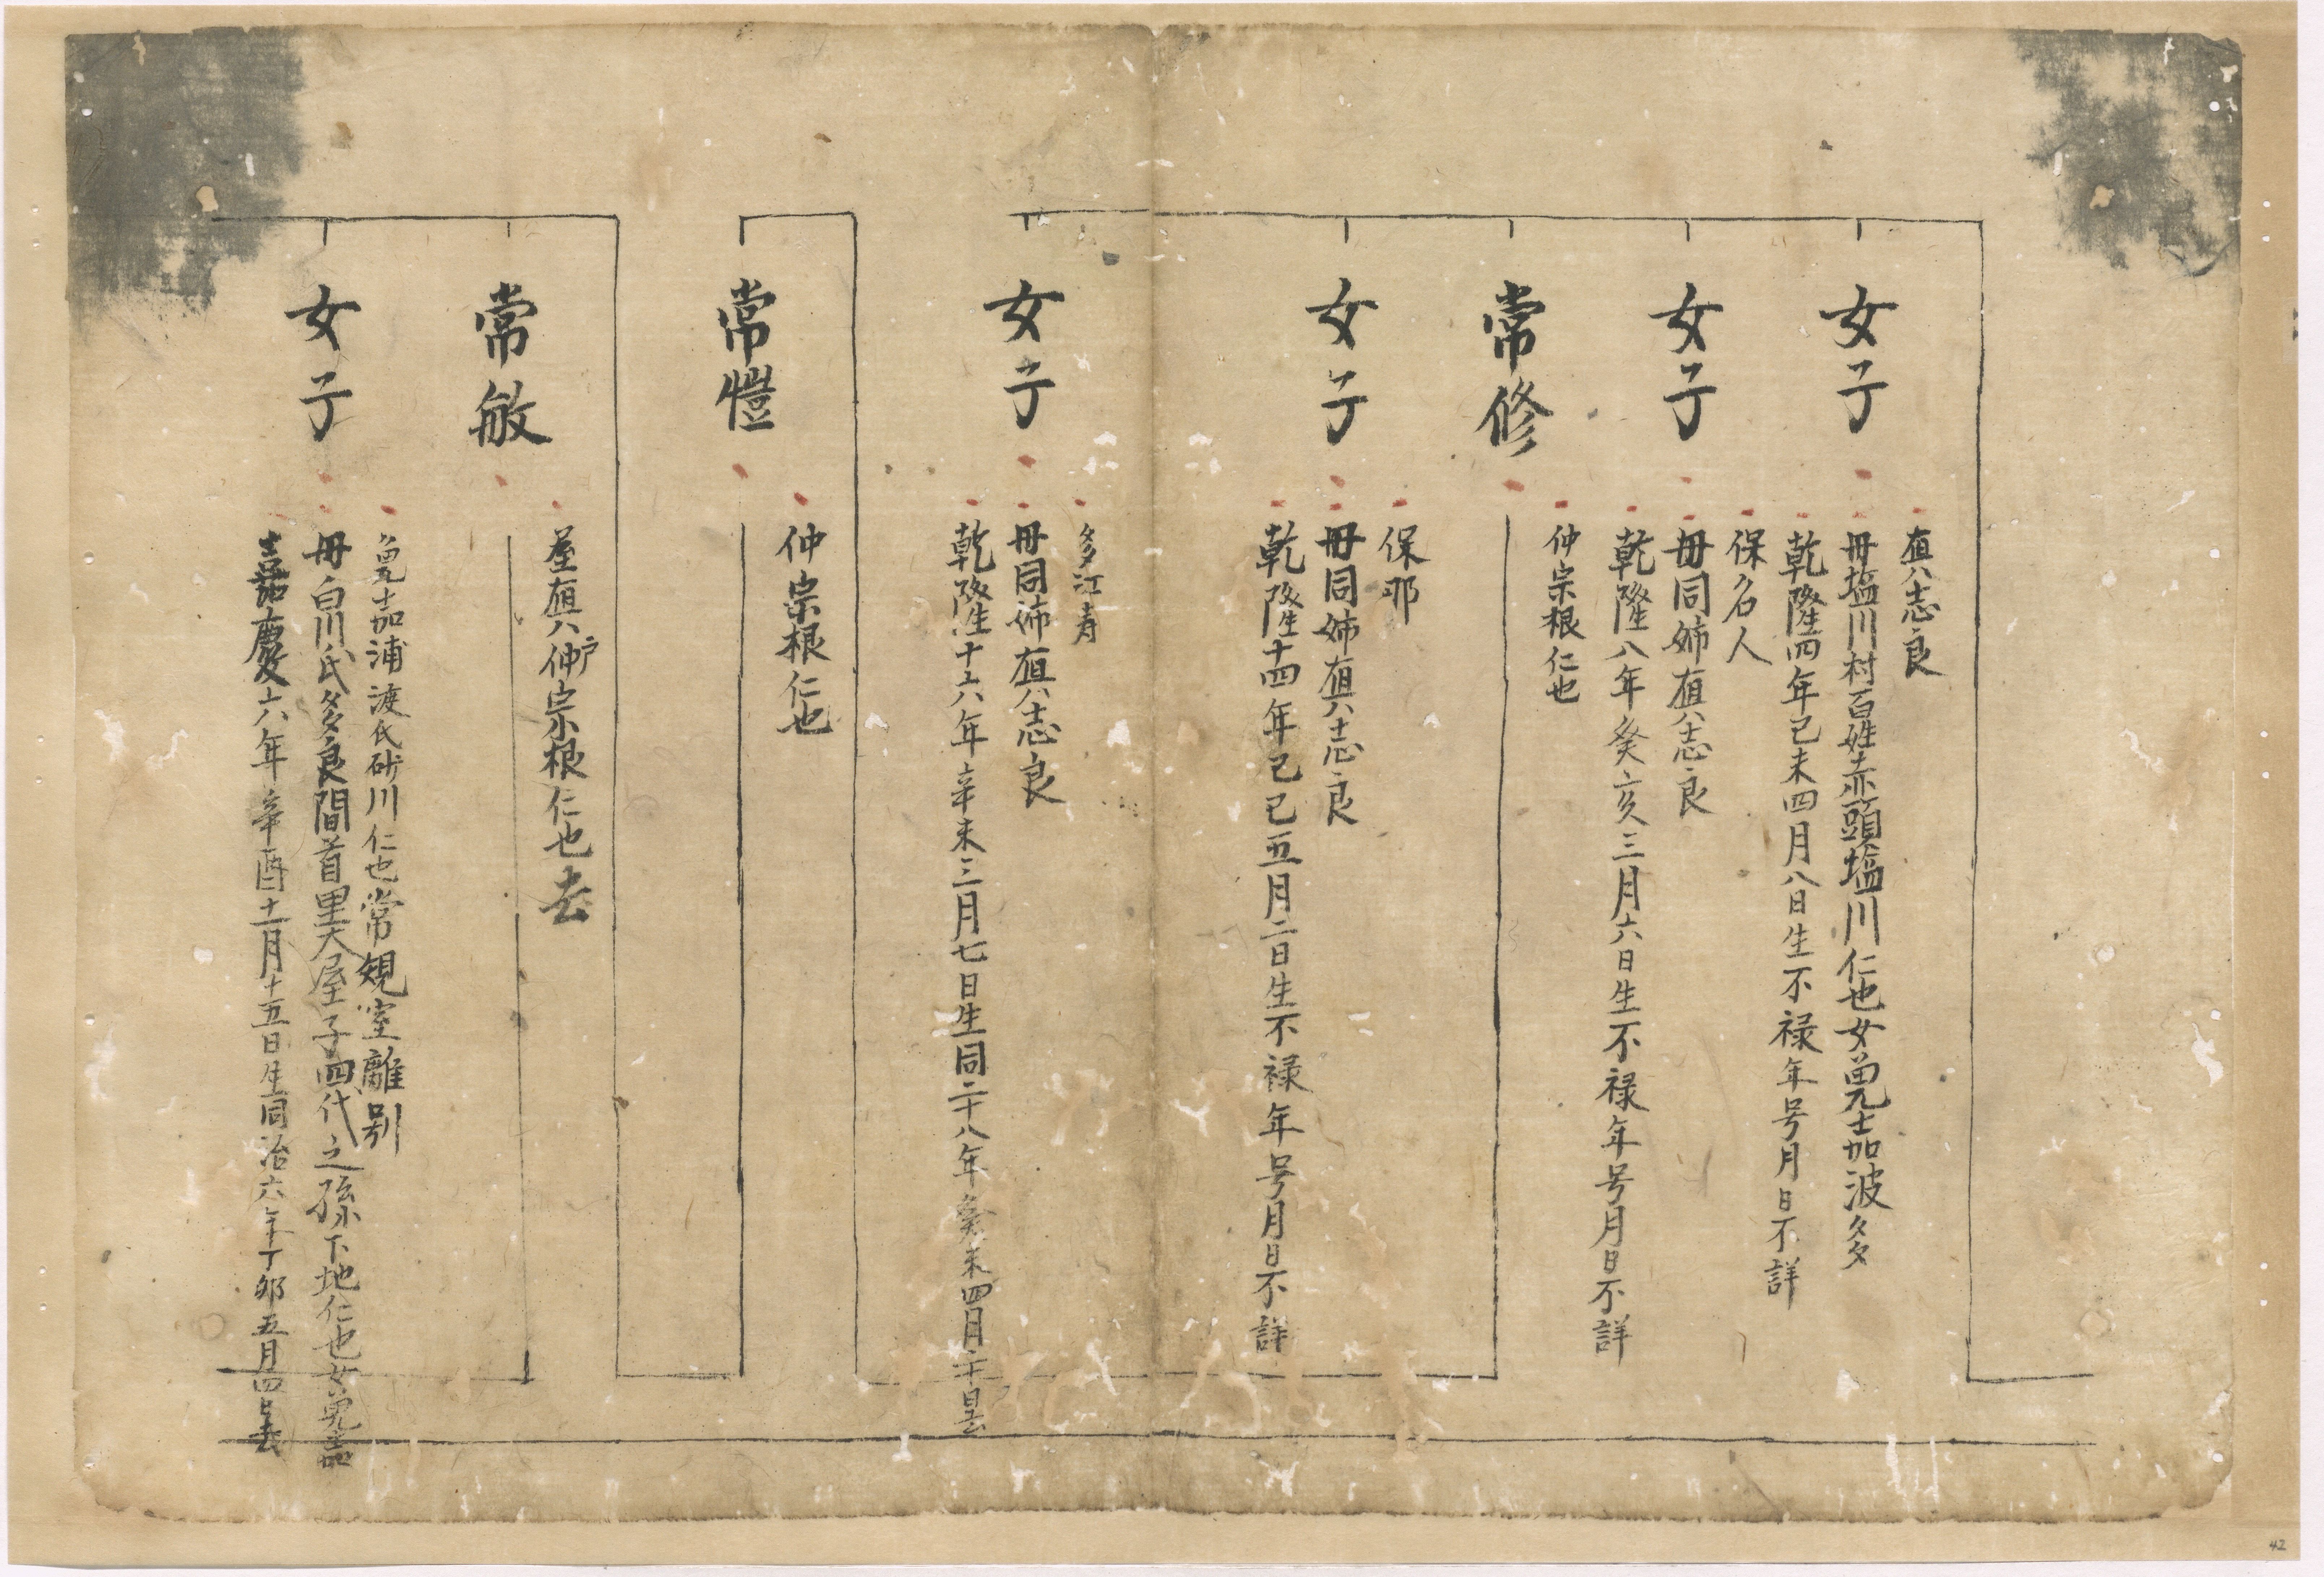 女子
真志良
母塩川村百姓赤頭塩川仁也女勇免嘉波多
乾隆四年己未四月八日生不禄年号月日不詳
女子
保名人
母同姉真志良
乾隆八年癸亥三月六日生不禄年号月日不詳
常修
仲宗根仁也
女子
保那
母同姉真志良
乾隆十四年己巳五月二日生不禄年号月日不詳
女子
多江寿
母同姉真志良
乾隆十六年辛未三月七日生同二十八年癸未四月二十日去
常愷
仲宗根仁也
常敏
屋真戸仲宗根仁也去
女子
嘉浦渡氏砂川仁也常規室離別
母白川氏多良間首里大屋子四代之孫下地仁也女免嘉
嘉慶六年辛酉十一月十五日生同治六年丁卯五月四日去
42